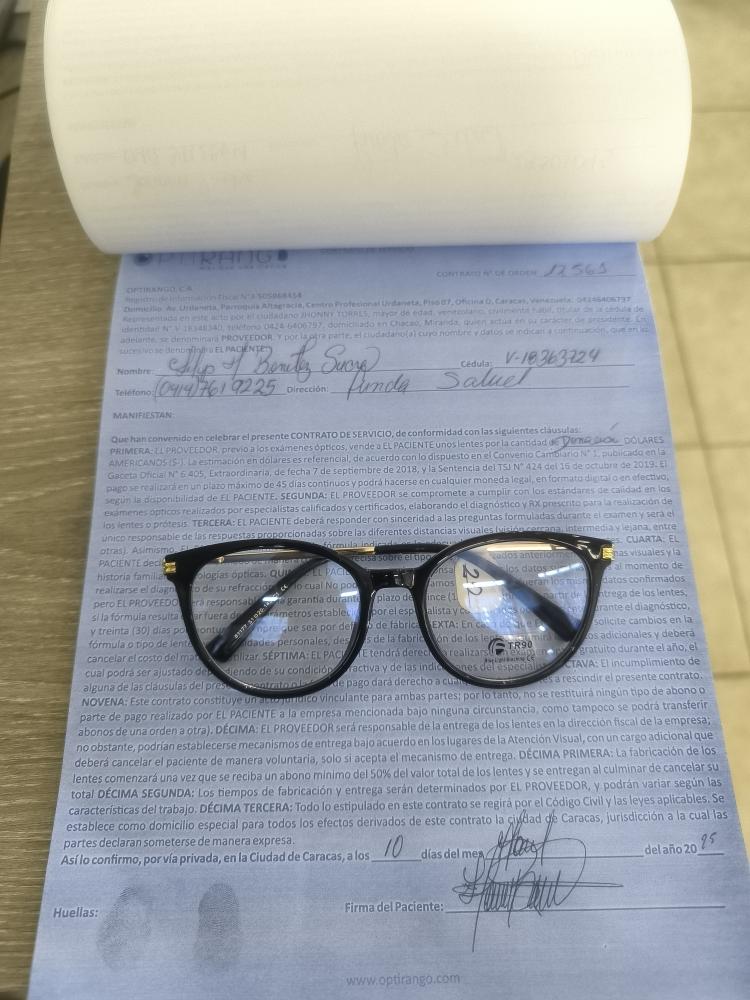 OPTIRANGO
CONTRATO DE SERVICIO
CONTRATO N° DE ORDEN 12561
OPTIRANGO, C.A.
Registro de Información Fiscal N° J-505068454
Domicilio: Av. Urdaneta, Parroquia Altagracia, Centro Profesional Urdaneta, Piso 07, Oficina D, Caracas, Venezuela. 04246406797
Representada en este acto por el ciudadano JHONNY TORRES, mayor de edad, venezolano, civilmente hábil, titular de la cédula de
identidad N° V-18348340, teléfono 0424-6406797, domiciliado en Chacao, Miranda, quien actúa en su carácter de presidente. En
adelante, se denominará PROVEEDOR. Y por la otra parte, el ciudadano(a) cuyo nombre y datos se indican a continuación, que en lo
sucesivo se denominará EL PACIENTE
Nombre: Benitez Cédula: V-18363724
Teléfono: (0414)7619225 Dirección: Salud
MANIFIESTAN:
Que han convenido en celebrar el presente CONTRATO DE SERVICIO, de conformidad con las siguientes cláusulas:
PRIMERA: EL PROVEEDOR, previo a los exámenes ópticos, vende a EL PACIENTE unos lentes por la cantidad de Donación DÓLARES
AMERICANOS ($-). La estimación en dólares es referencial, de acuerdo con lo dispuesto en el Convenio Cambiario N° 1, publicado en la
Gaceta Oficial N° 6.405, Extraordinaria, de fecha 7 de septiembre de 2018, y la Sentencia del TSJ N° 424 del 16 de octubre de 2019. El
pago se realizará en un plazo máximo de 45 días continuos y podrá hacerse en cualquier moneda legal, en formato digital o en efectivo,
según la disponibilidad de EL PACIENTE. SEGUNDA: EL PROVEEDOR se compromete a cumplir con los estándares de calidad en los
exámenes ópticos realizados por especialistas calificados y certificados, elaborando el diagnóstico y RX prescrito para la realización de
los lentes o prótesis. TERCERA: EL PACIENTE deberá responder con sinceridad a las preguntas formuladas durante el examen y será el
único responsable de las respuestas proporcionadas sobre las diferentes distancias visuales (visión cercana, intermedia y lejana, entre
otras). Asimismo, fórmula CUARTA: EL
PACIENTE precisa sobre el tipo visuales y la
historia familiar patologías ópticas. QUINTA al momento de
realizarse el diagnóstico de su refracción lo cual No datos confirmados
pero EL PROVEEDOR será responsable garantía durante plazo de entrega de los lentes,
si la fórmula resulta fuera parámetros por el especialista durante el diagnóstico,
y treinta (30) días sea por de SEXTA: En caso de que solicite cambios en la
fórmula o tipo de lentes personales, de la fabricación de los lentes adicionales y deberá
cancelar el costo del material SÉPTIMA: EL PACIENTE tendrá derecho gratuito durante el año, el
cual podrá ser ajustado dependiendo de su condición y de las indicaciones del especialista OCTAVA: El incumplimiento de
alguna de las cláusulas del presente contrato o de pago dará derecho a cualquiera a rescindir el presente contrato.
NOVENA: Este contrato constituye un acto jurídico vinculante para ambas partes; por lo tanto, no se restituirá ningún tipo de abono o
parte de pago realizado por EL PACIENTE a la empresa mencionada bajo ninguna circunstancia, como tampoco se podrá transferir
abonos de una orden a otra). DÉCIMA: EL PROVEEDOR será responsable de la entrega de los lentes en la dirección fiscal de la empresa;
no obstante, podrían establecerse mecanismos de entrega bajo acuerdo en los lugares de la Atención Visual, con un cargo adicional que
deberá cancelar el paciente de manera voluntaria, solo si acepta el mecanismo de entrega. DÉCIMA PRIMERA: La fabricación de los
lentes comenzará una vez que se reciba un abono mínimo del 50% del valor total de los lentes y se entregan al culminar de cancelar su
total DÉCIMA SEGUNDA: Los tiempos de fabricación y entrega serán determinados por EL PROVEEDOR, y podrán variar según las
características del trabajo. DÉCIMA TERCERA: Todo lo estipulado en este contrato se regirá por el Código Civil y las leyes aplicables. Se
establece como domicilio especial para todos los efectos derivados de este contrato la ciudad de Caracas, jurisdicción a la cual las
partes declaran someterse de manera expresa.
Así lo confirmo, por vía privada, en la Ciudad de Caracas, a los 10 días del mes del año 2025
Huellas: Firma del Paciente:
www.optirango.com
22
TR90
Blue Light Blocking CE